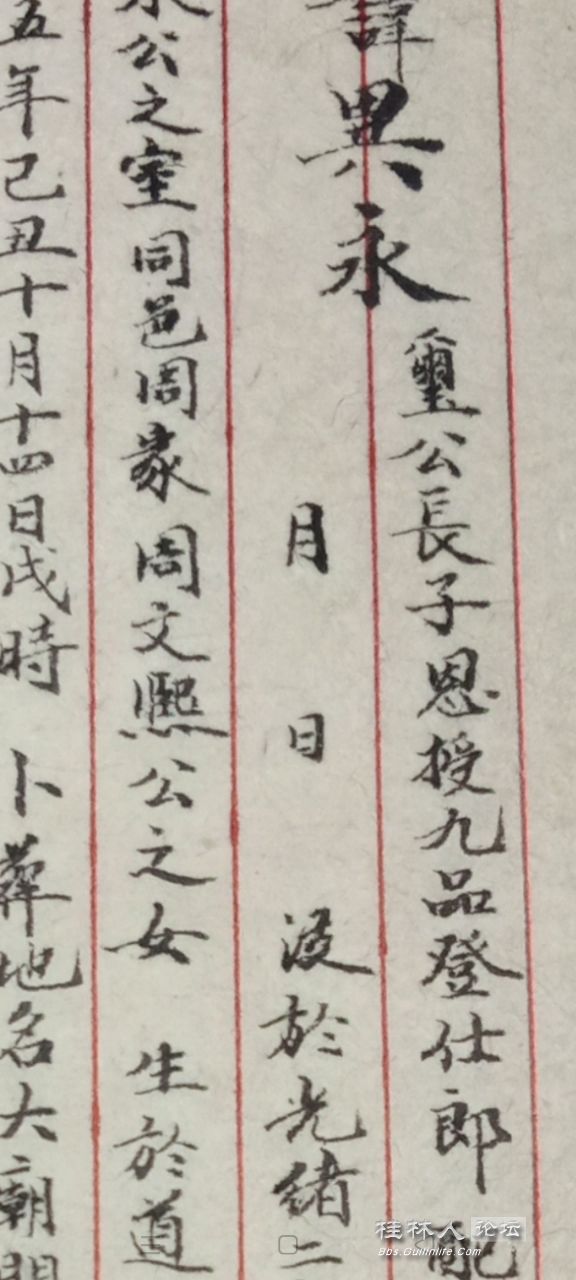 諱異永
璽公長子恩授九品登仕郎 配
月 日 没於光緒二
永公之室同邑周家周文熙公之女 生於道
五年己丑十月十四日戌時 卜葬地名大廟
桂林人论坛
Bbs.Guilinlife.Com